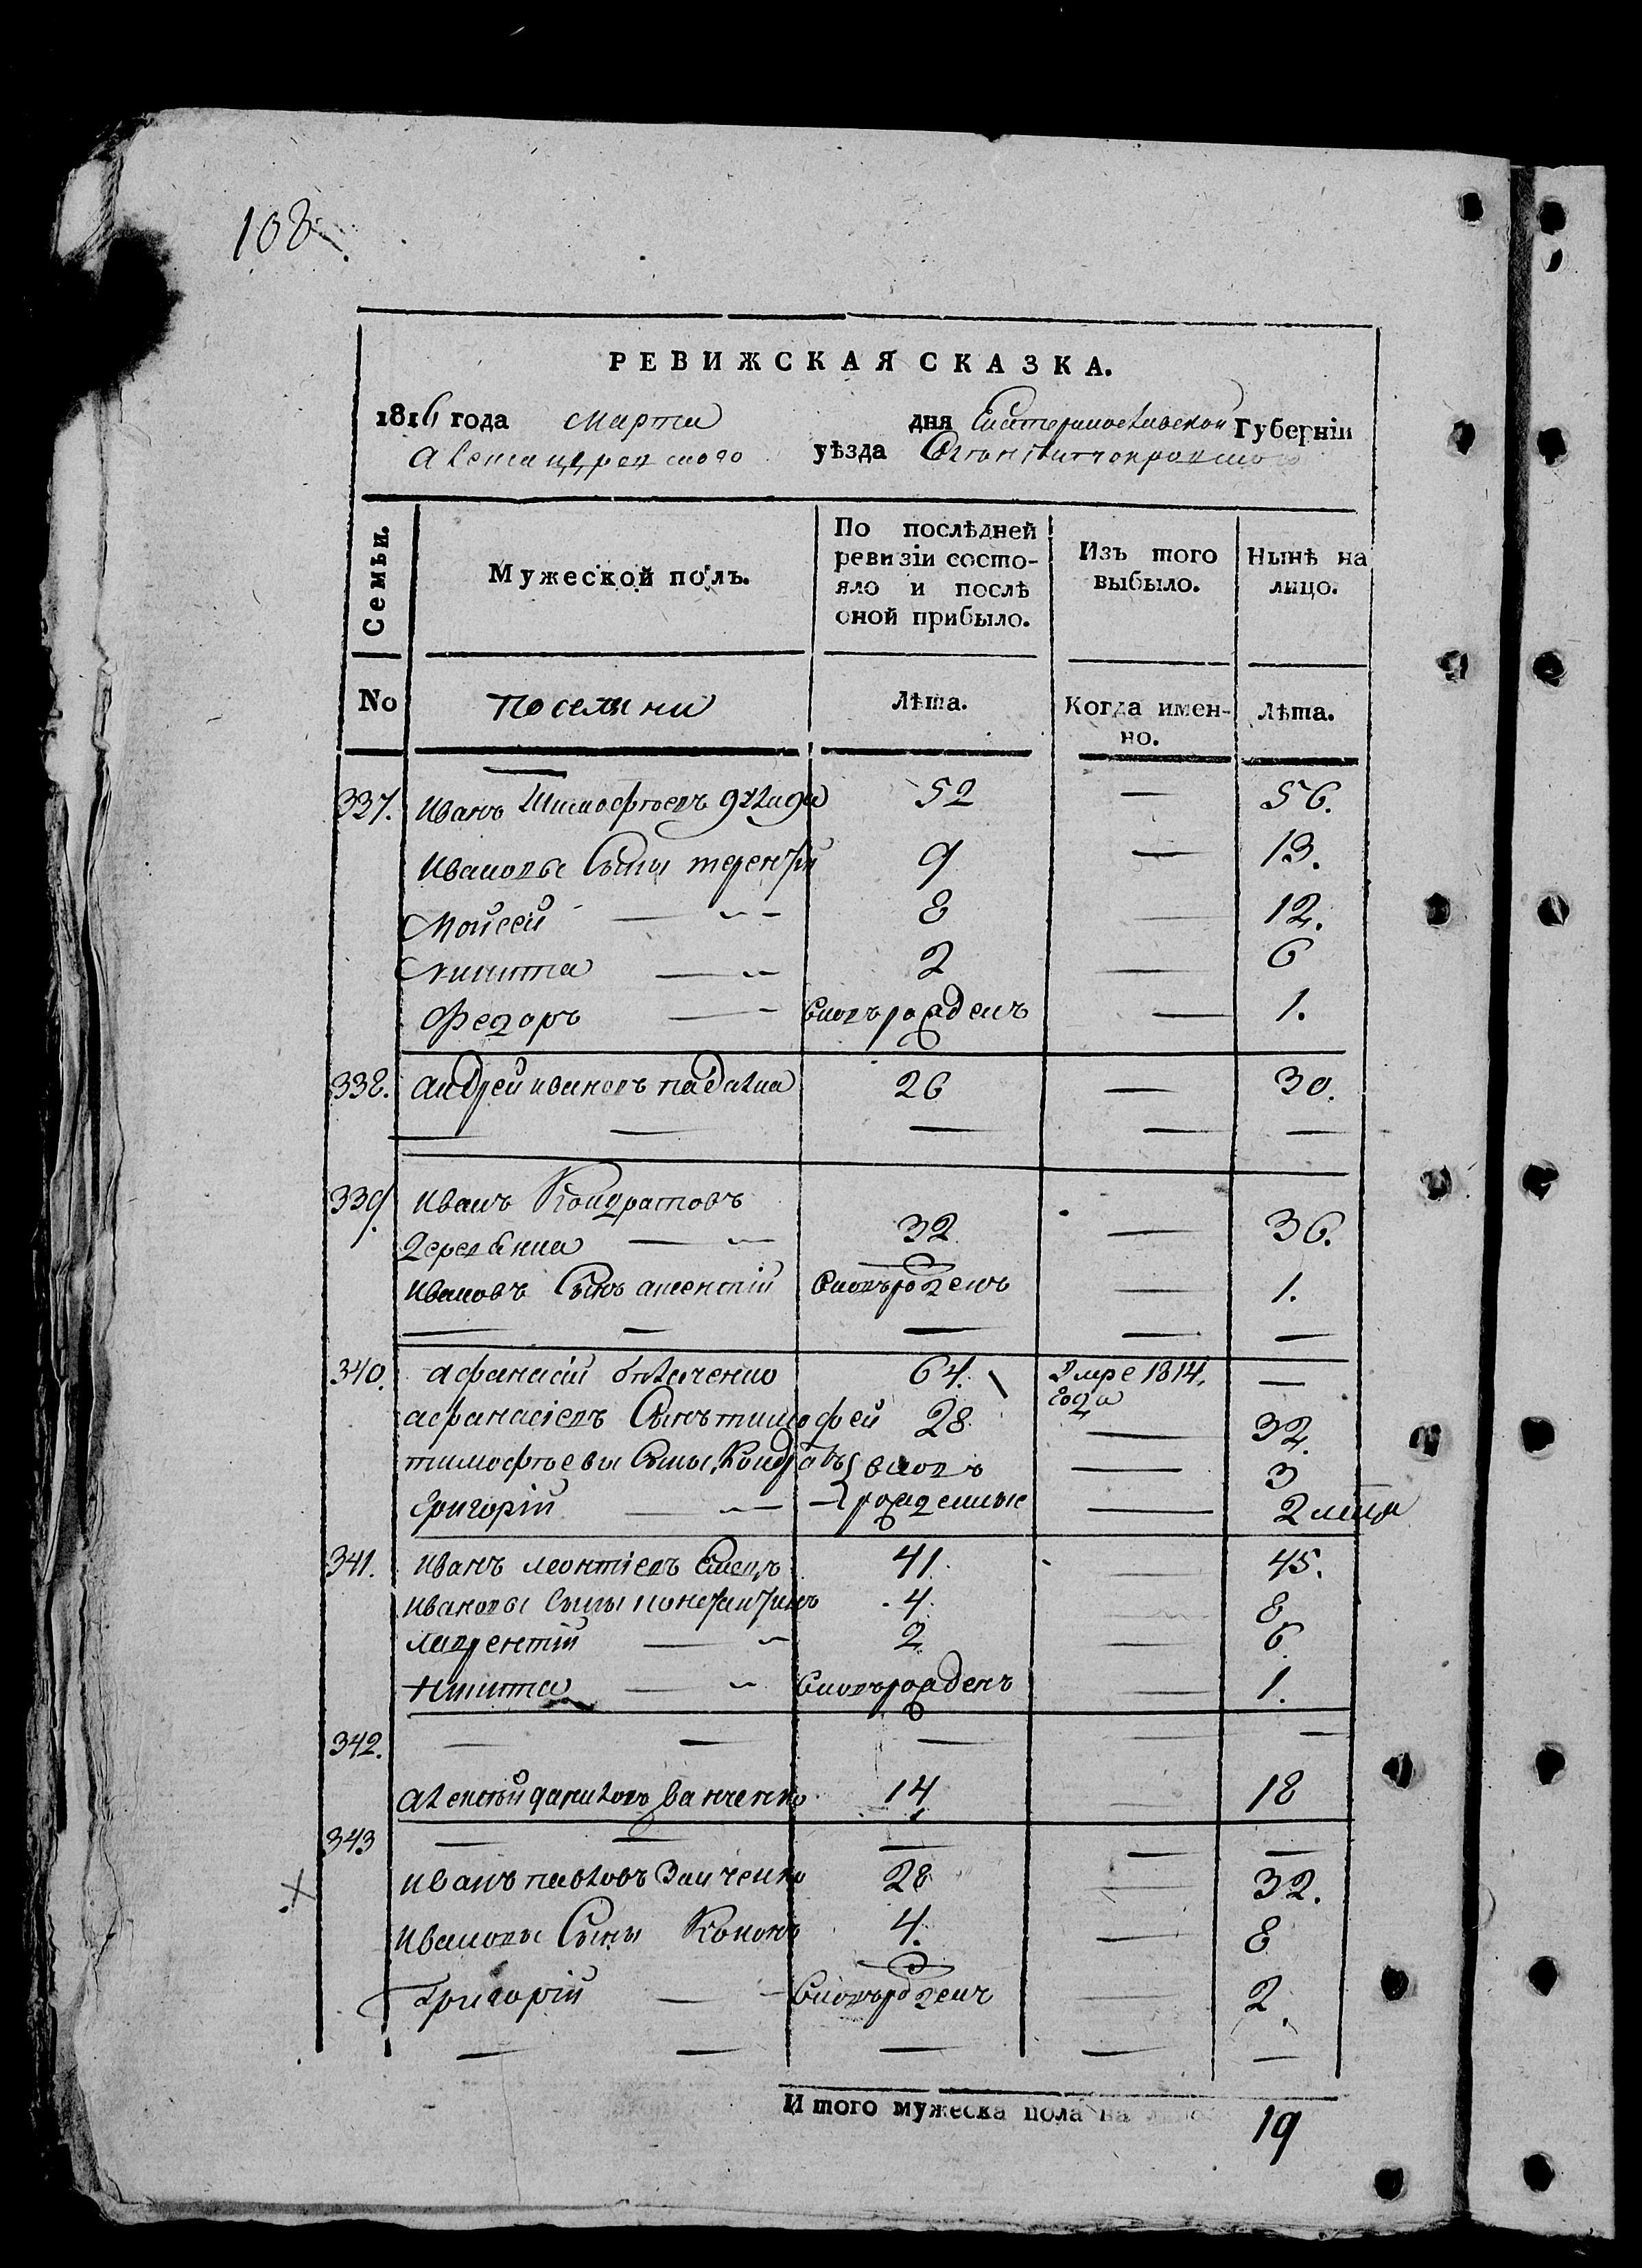 108.
РЕВИЖСКАЯ СКАЗКА.
1816 года марта дня Екатеринославской Губерніи
Александровского уѣзда
Семьи. Мужеской полъ. По послѣдней ревизіи состояло и послѣ оной прибыло. Изъ того выбыло. Ныне на лицо.
No Поселяни Лѣта. Когда именно. Лѣта.
337. Иванъ Тимофѣевъ 52 — 56.
Ивановы Сыны терентій 9 — 13.
Мойсей — 8 — 12.
Никита — 2 — 6
Федоръ — вновърожденъ — 1.
338. андрей ивановъ падалка 26 — 30.
— — — — —
339. иванъ Кондратовъ
деревянка — 32 — 36.
ивановъ Сынъ алексѣй вновърожденъ — 1.
— — — — —
340. афанасій 64. умре 1814. года —
афанасіевъ Сынъ тимофей 28 — 32.
тимофѣевы Сыны, Кондратъ вновь — 3
Григорій — рожденные — 2 лѣта
341. иванъ леонтіевъ Швецъ 41. — 45.
ивановы Сыны константинъ 4. — 8
лаврентій — 2 — 6.
никита — вновърожденъ — 1.
342. — — — — —
алексѣй даниловъ ванченко 14 — 18
343 — — — — —
иванъ павловъ Заиченко 28 — 32.
ивановы Сыны Кононъ 4. — 8
Григорій — вновърожденъ — 2.
— — — — —
Итого мужеска пола на лицо 19